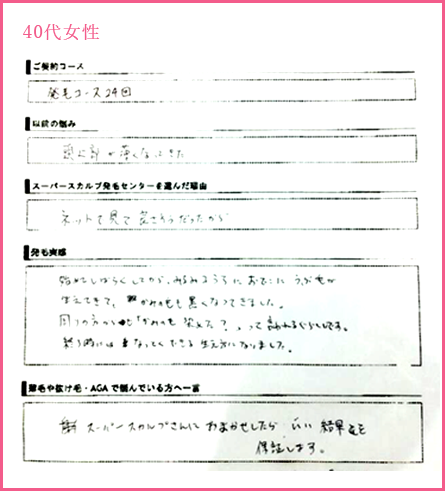 40代女性
ご契約コース
発毛コース24回
以前の悩み
頭上部が薄くなってきた
スーパースカルプ発毛センターを選んだ理由
ネットで見て良さそうだったから
発毛実感
始めてしばらくしてから、みるみるうちにおでこにうぶ毛が
生えてきて、かみの毛も黒くなってきました。
周りの方からも「かみの毛染めた?」って言われるぐらいです。
終う時にはなっとくできる生え方になりました。
薄毛や抜け毛・AGAで悩んでいる方へ一言
スーパースカルプさんにおまかせしたらいい結果を
保証します。